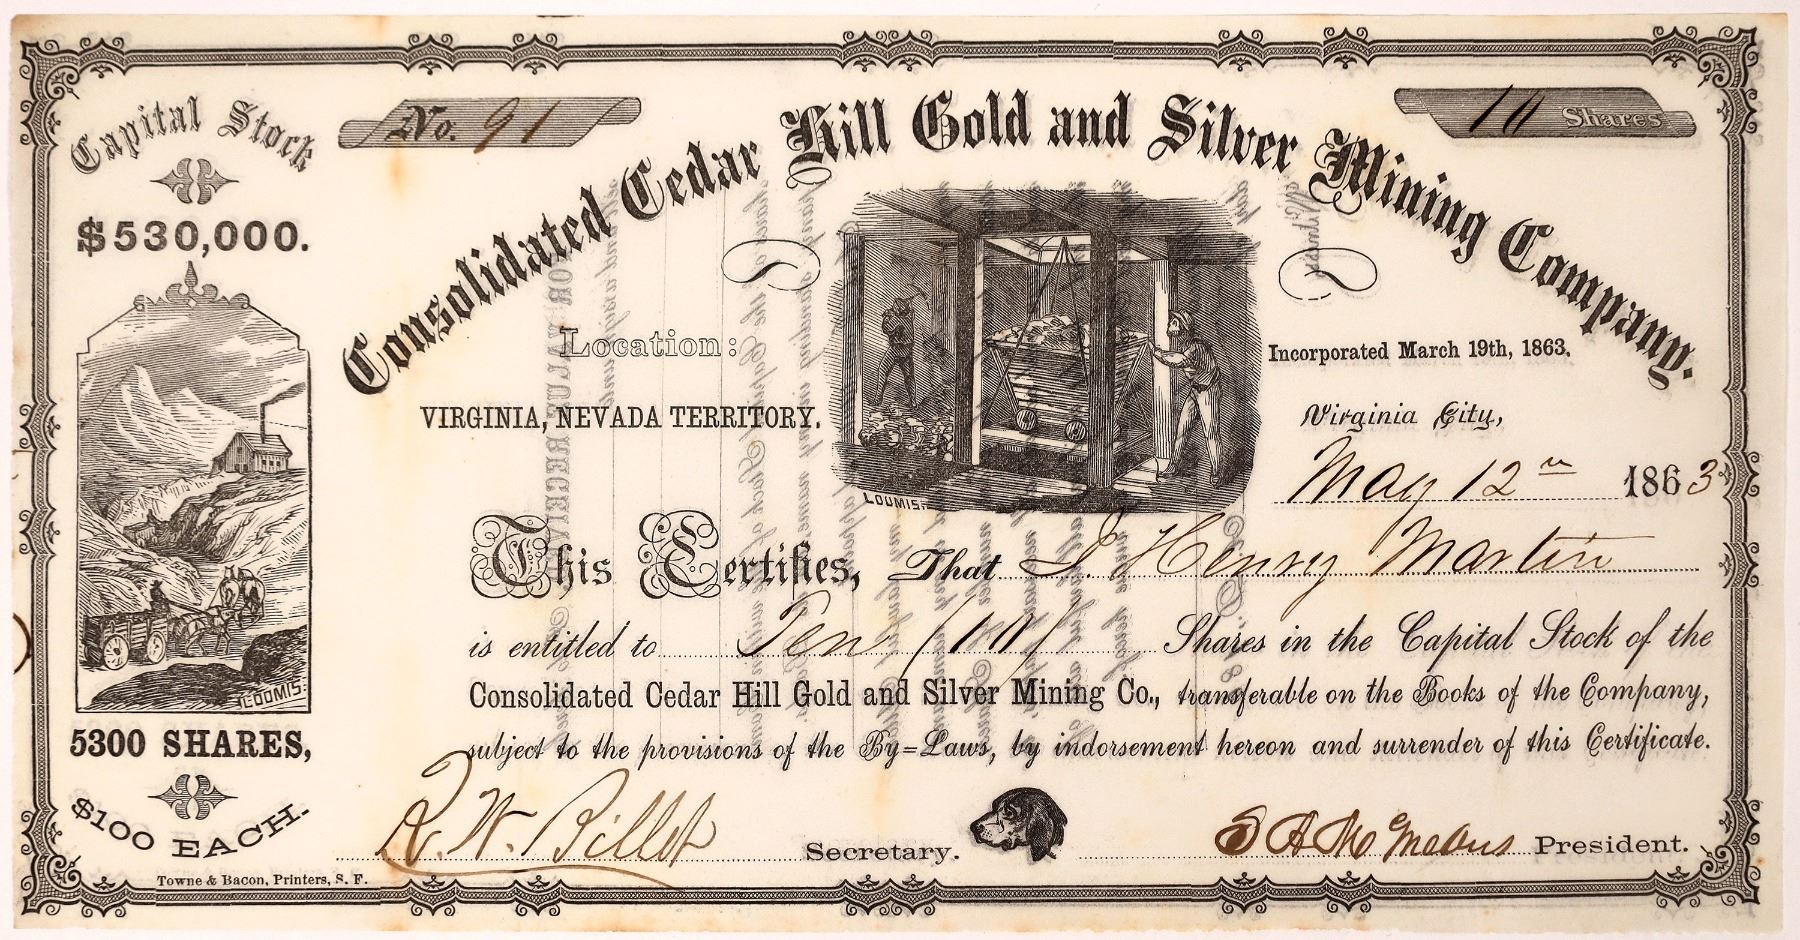 Capital Stock
$530,000.
LOOMIS.
5300 SHARES,
$100 EACH.
Towne & Bacon, Printers, S. F.
No. 91
10 Shares
Consolidated Cedar Hill Gold and Silver Mining Company.
Location:
VIRGINIA, NEVADA TERRITORY.
LOOMIS.
Incorporated March 19th, 1863.
Virginia City,
May 12th 1863
This Certifies, That J. Henry Martin
is entitled to Ten (10) Shares in the Capital Stock of the
Consolidated Cedar Hill Gold and Silver Mining Co., transferable on the Books of the Company,
subject to the provisions of the By=Laws, by indorsement hereon and surrender of this Certificate.
R. W. Billet Secretary.
President.